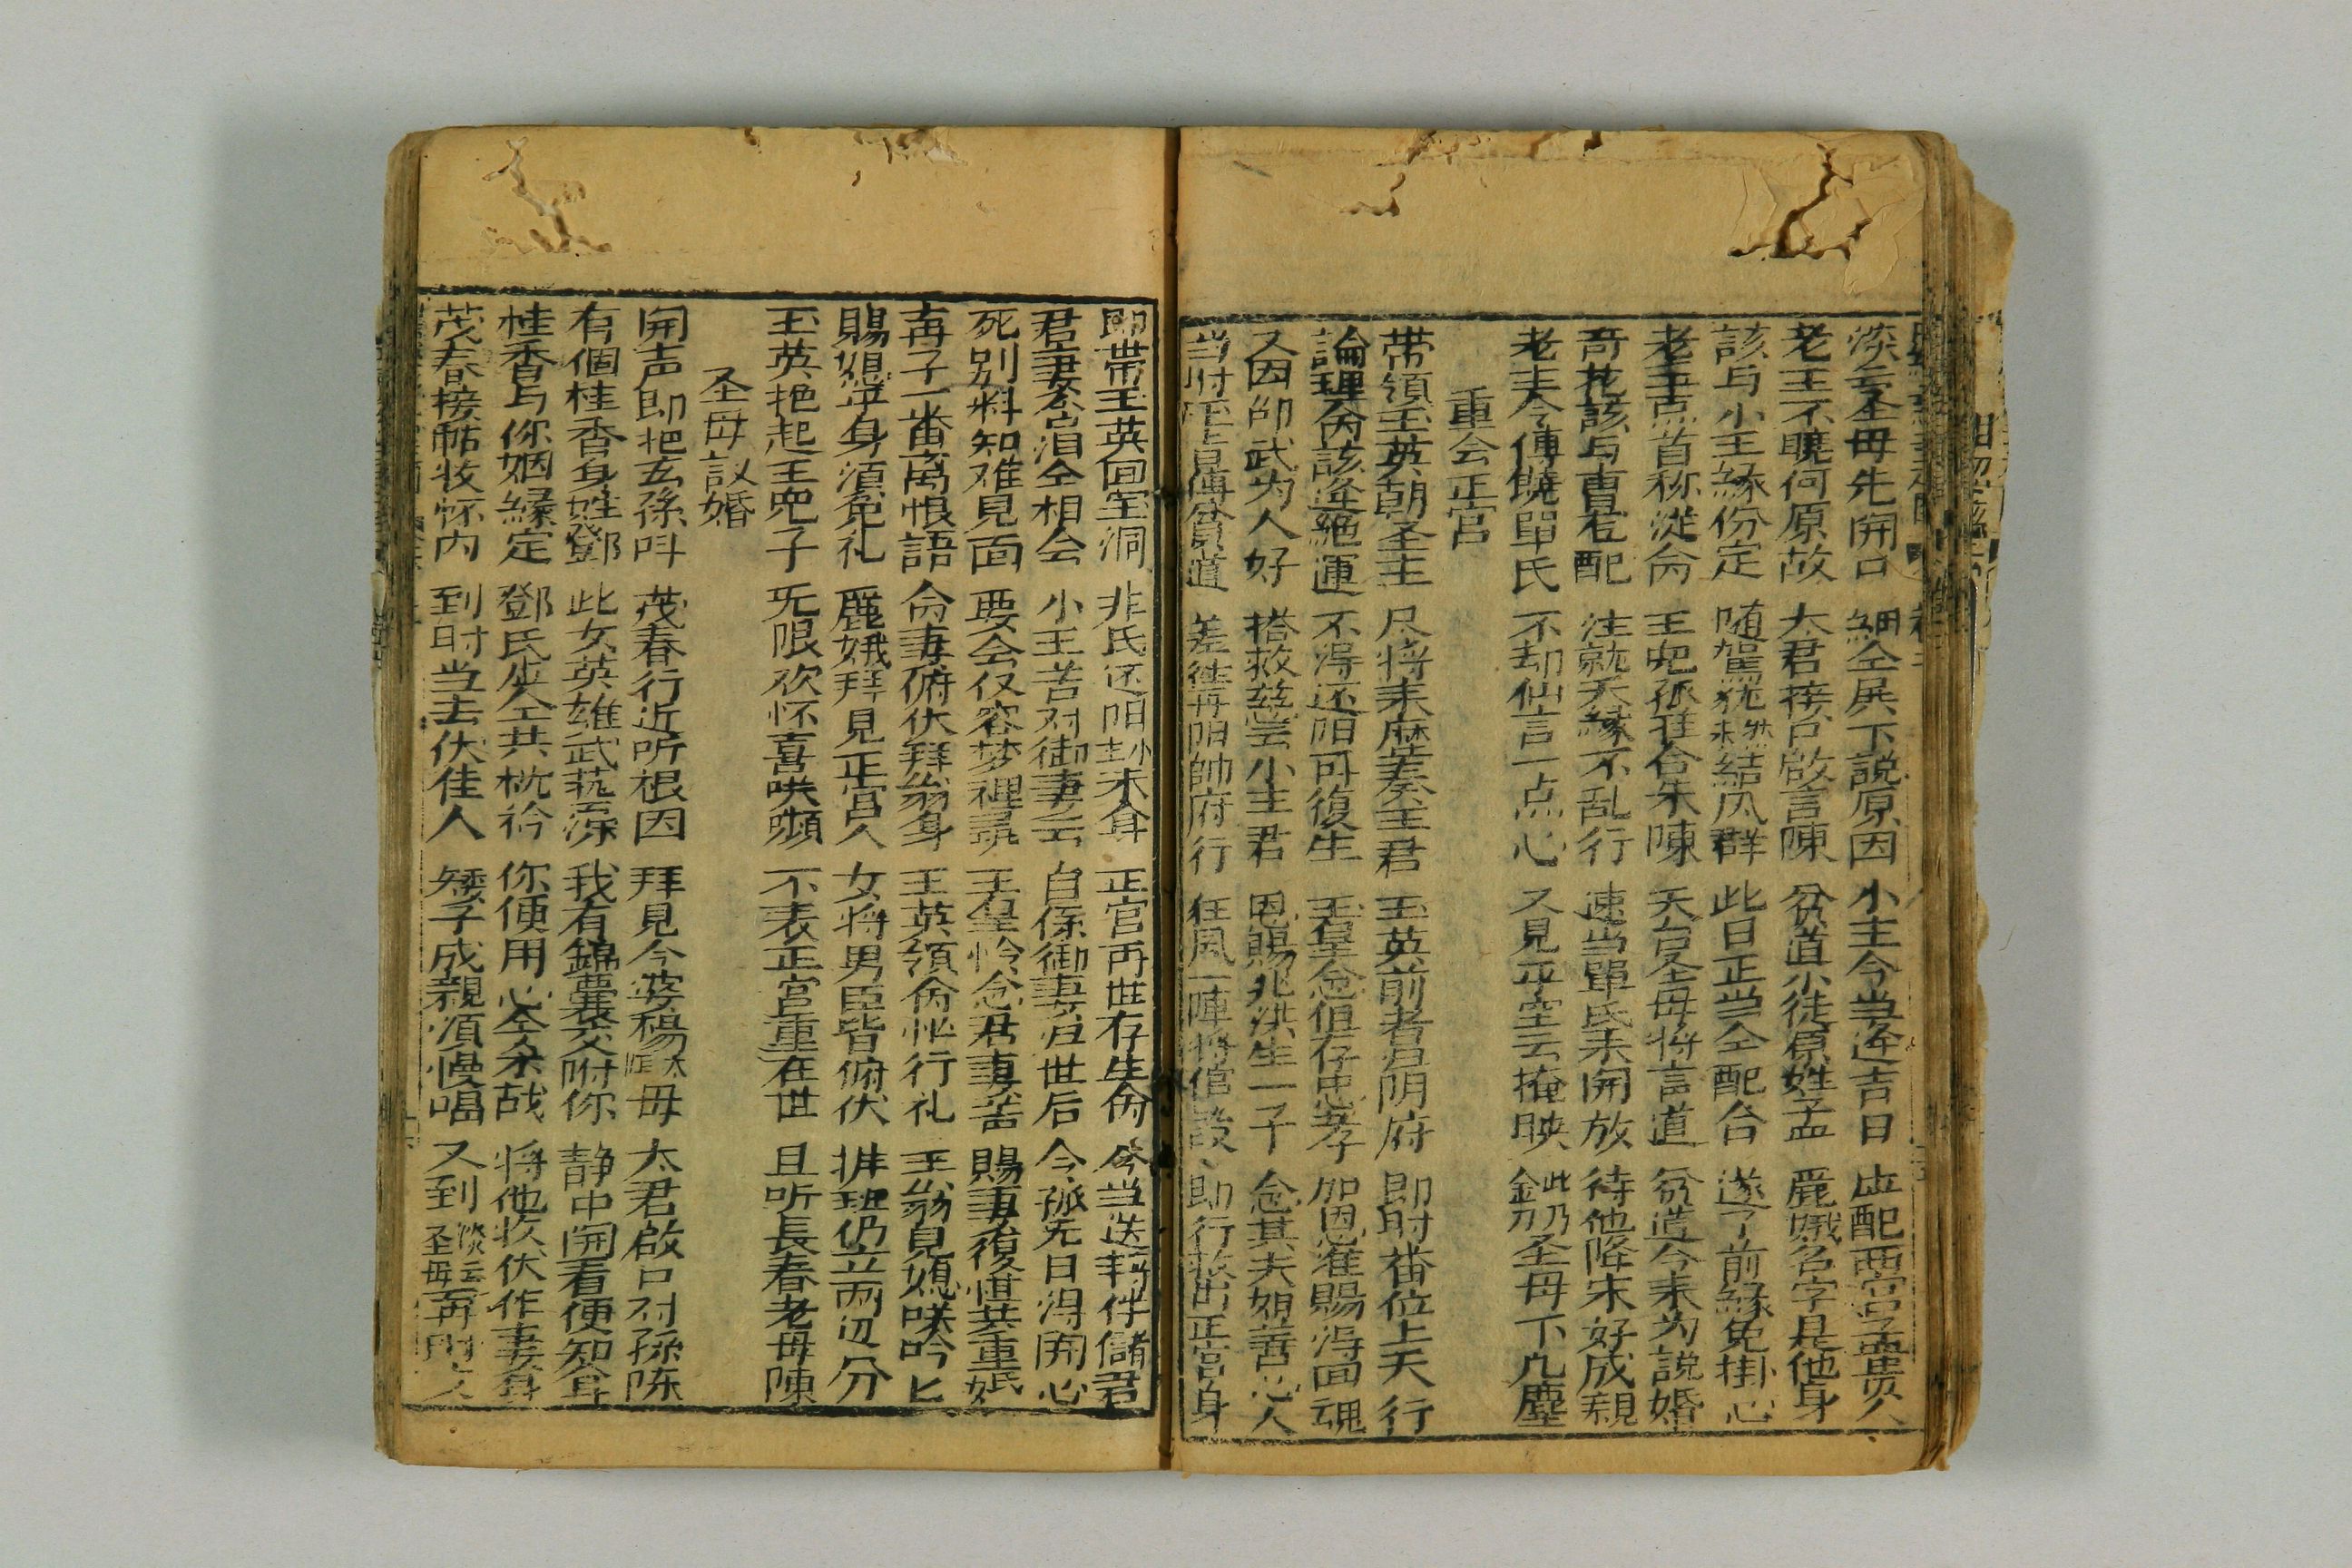 淡云圣母先開口 細仝殿下說原因 小主今当逢吉日 应配西宫孟贵人
老王不曉何原故 太君接口啟言陳 贫道小徒原姓孟 麗娥名字是他身
該与小王緣份定 随駕犹然未結凤群 此日正当仝配合 遂了前緣免掛心
老王点首称從命 王兜孤狂合朱陳 天反圣母將言道 贫道今来为說婚
奇花該与曹君配 注就天緣不乱行 速当單氏来開放 待他降宋好成親
老夫今傳饒單氏 不却仙言一点心 又見平空云掩映 此乃金刀圣母下凡塵
重会正宫
带領玉英朝圣主 尺将来歴奏主君 玉英前者归阴府 即时番位上天行
論理命該逢絕運 不得还阳可復生 玉皇念值存忠孝 加恩准賜得回魂
又因卲武为人好 搭救慈雲小主君 恩賜兆洪生一子 念其夫姐善心人
差徒再阳帥府行 狂風一陣将倌設 即行救出正宫身
即带玉英回宝洞 非氏还阳刦未身 正宫再世存生命 今当送轉伴儲君
君妻今宫泪仝相会 小王苦对御妻云 自係御妻归世后 今孤无日得開心
死别料知难見面 要会仅容梦裡尋 玉皇怜念君妻苦 賜妻復世共重姻
再子一番离恨語 命妻俯伏拜翁身 玉英領命忙行礼 王翁見媳咲吟匕
賜媳平身須免礼 麗娥拜見正宫人 女将男臣皆俯伏 排班仍立两边分
玉英抱起王兜子 无限欢怀喜咲頻 不表正宫重在世 且听長春老母陳
圣母設婚
開声即把玄孫叫 茂春行近听根因 拜見今婆楊太母 太君啟口对孫陈
有個桂香身姓鄧 此女英雄武芸深 我有錦囊交咐你 静中開看便知耳
桂香与你姻緣定 鄧氏应仝共枕衿 你便用心仝余战 将他收伏作妻身
茂春接帖收怀内 到时当去伏佳人 矮子成親須慢唱 又到淡云圣母再